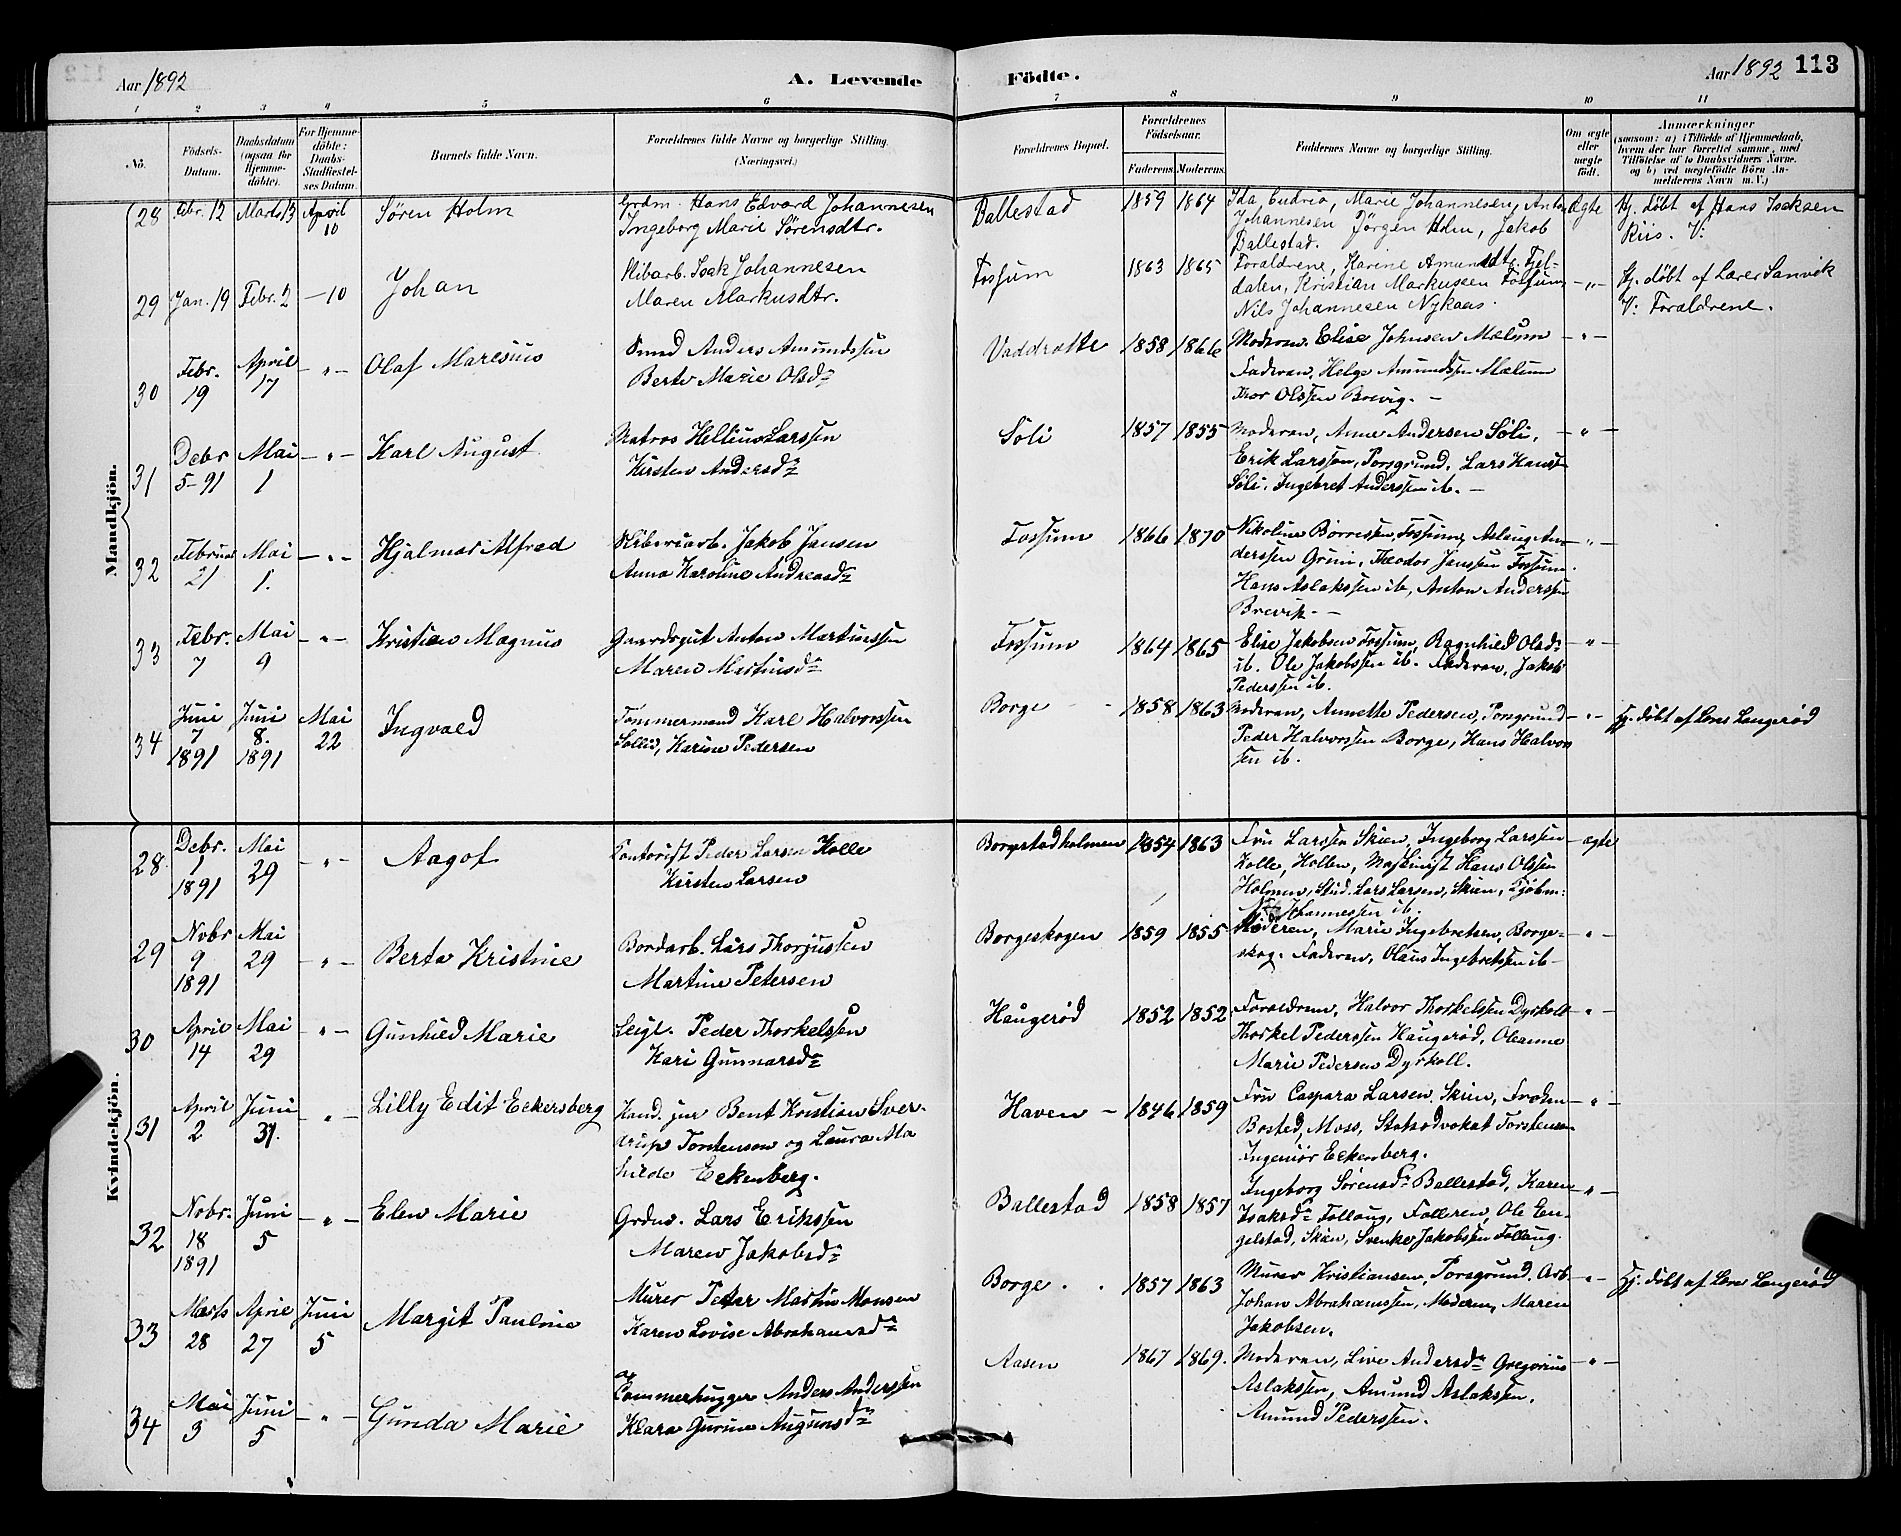 Aar 1892
A. Levende
Födte.
Aar 1892 113
1 2 3 4 5 6 7 8 9 10 11
No.
Födsels-
Datum.
Daabsdatum
(ogsaa for
Hjemme-
döbte).
For Hjemme-
döbte:
Daabs-
Stadfæstel-
ses Datum.
Barnets fulde Navn.
Forældrenes fulde Navne og borgerlige Stilling.
(Næringsvei.)
Forældrenes Bopæl.
Forældrenes
Födselsaar.
Faderens. Moderens.
Faddernes Navne og borgerlige Stilling.
Om ægte
eller
uægte
födt.
Anmærkninger
(saasom: a) i Tilfælde af Hjemmedaab,
hvem der har forrettet samme, med
Tilföielse af to Daabsvidners Navne,
og b) ved uægtefödte Börn An-
melderens Navn m. V.)
Mandkjön.
28 Febr. 12 Marts 13 April 10 Sören Holm
Grdm. Hans Edvard Johannesen
Ingeborg Marie Sörensdtr.
Ballestad 1859 1864
Ida Marie Johannesen, Anton
Johannesen Jörgen Holm, Jakob
Ballestad.
Ægte
Hj. döbt af Hans Isaksen
Riis. V:
29 Jan. 19 Febr. 2 — 10 Johan
Slibarb. Isak Johannesen
Maren Markusdtr.
Fossum 1863 1865
Forældrene, Karine Amundsdtr. Fjel-
dalen, Kristian Markussen Fossum,
Nils Johannesen Nykaas.
— " —
Hj. döbt af Lærer Sanvik
V: Forældrene.
30 Febr. 19 April 17 — " — Olaf Marelius
Smed Anders Amundssen
Berte Marie Olsdr
Vaddrette 1858 1866
Moderen, Elise Johnsen Mælum
Faderen, Helge Amundssen Mælum
Thor Olssen Brevig. —
— " —
31 Debr 5-91 Mai 1 — " — Karl August
Matros Hellius Larssen
Kirsten Andersdr
Soli 1857 1855
Moderen, Anne Andersen Söli,
Erik Larssen, Porsgrund, Lars Hanssen
Söli, Ingebret Anderssen ib. —
— " —
32 Februar 21 Mai 1. — " — Hjalmar Alfred
Sliberiarb. Jakob Jansen
Anna Karoline Andreasdr
Fossum 1866 1870
Nikoline Börresen, Fossum, Aslaug An-
derssen Grini, Theodor Janssen Fossum.
Hans Aslakssen ib, Anton Anderssen
Brevik. —
— " —
33 Febr. 7 Mai 9 — " — Kristian Magnus
Gaardsgut Anton Martinssen
Maren Martinsdr
Fossum 1864 1865
Elise Jakobsen Fossum, Ragnhild Olsdr
ib. Ole Jakobssen ib. Faderen, Jakob
Pederssen ib.
— " —
34 Juni 7 1891 Juni 8. 1891 Mai 22 Ingvald
Tömmermand Karl Halvorssen
Sollid, Karine Pedersen
Borge 1858 1863
Moderen, Annette Pedersen, Porsgrund
Peder Halvorssen Borge, Hans Halvors
sen ib.
— " —
Hj. döbt af Lærer Langeröd
Kvindekjön.
28 Debr. 1 1891 Mai 29 — " — Aagot
Kontorist Peder Larsen Kolle
Kirsten Larsen
Borgestadholmen 1854 1863
Fru Larssen Skien, Ingeborg Larssen
Kolle, Hollen, Maskinist Hans Olssen
Holmen, Stud. Lars Larsen, Skien, Kjöbm:
Johannessen ib.
— ægte
29 Nobr 9 1891 Mai 29 — " — Berta Kristine
Bordarb. Lars Thorjussen
Martine Petersen
Borgeskogen 1859 1855
Moderen, Marie Ingebretsen, Borge-
skog. Faderen, Olaus Ingebretssen ib —
— " —
30 April 14 Mai 29 — " — Gunhild Marie
Leigl. Peder Thorkelssen
Kari Gunnarsdr
Haugeröd 1852 1852
Forældrene, Halvor Thorkelssen Dyrkoll
Thorkel Pederssen Haugeröd, Oleanne
Marie Pedersen Dyrkoll.
— " —
31 April 2 Juni 31. — " — Lilly Edit Eckersberg
Kand. jur Bent Kristian Sver-
drup Torstenson og Laura Ma
thilde Eckersberg.
Haven — 1846 1859
Fru Caspara Larsen, Skien, Fröken
Bosted, Moss, Statsadvokat Torstenson
Ingeniör Eckersberg.
— " —
32 Nobr. 18 1891 Juni 5 — " — Elen Marie
Grdm. Lars Erikssen
Maren Jakobsdr
Ballestad 1858 1857
Ingeborg Sörensdr Ballestad, Karen
Isaksdr Follaug, Faderen, Ole En-
gelstad, Skien, Svenke Jakobssen Follaug.
— " —
33 Marts 28 April 27 Juni 5 Margit Pauline
Murer Peter Martin Monsen
Karen Lovise Abrahamsdr
Borge. 1857 1863
Murer Kristiansen, Porsgrund. Arb.
Johan Abrahamssen, Moderen, Maren
Jakobsen.
— " —
Hj. döbt af Lærer Langeröd
34 Mai 3 Juni 5 — " — Gunda Marie
Tömmerhugger Anders Anderssen
Klara Gurine Augunsdr
Aasen 1867 1869.
Moderen, Live Andersdr Gregorius
Aslakssen, Amund Aslakssen,
Amund Pederssen.
— " —